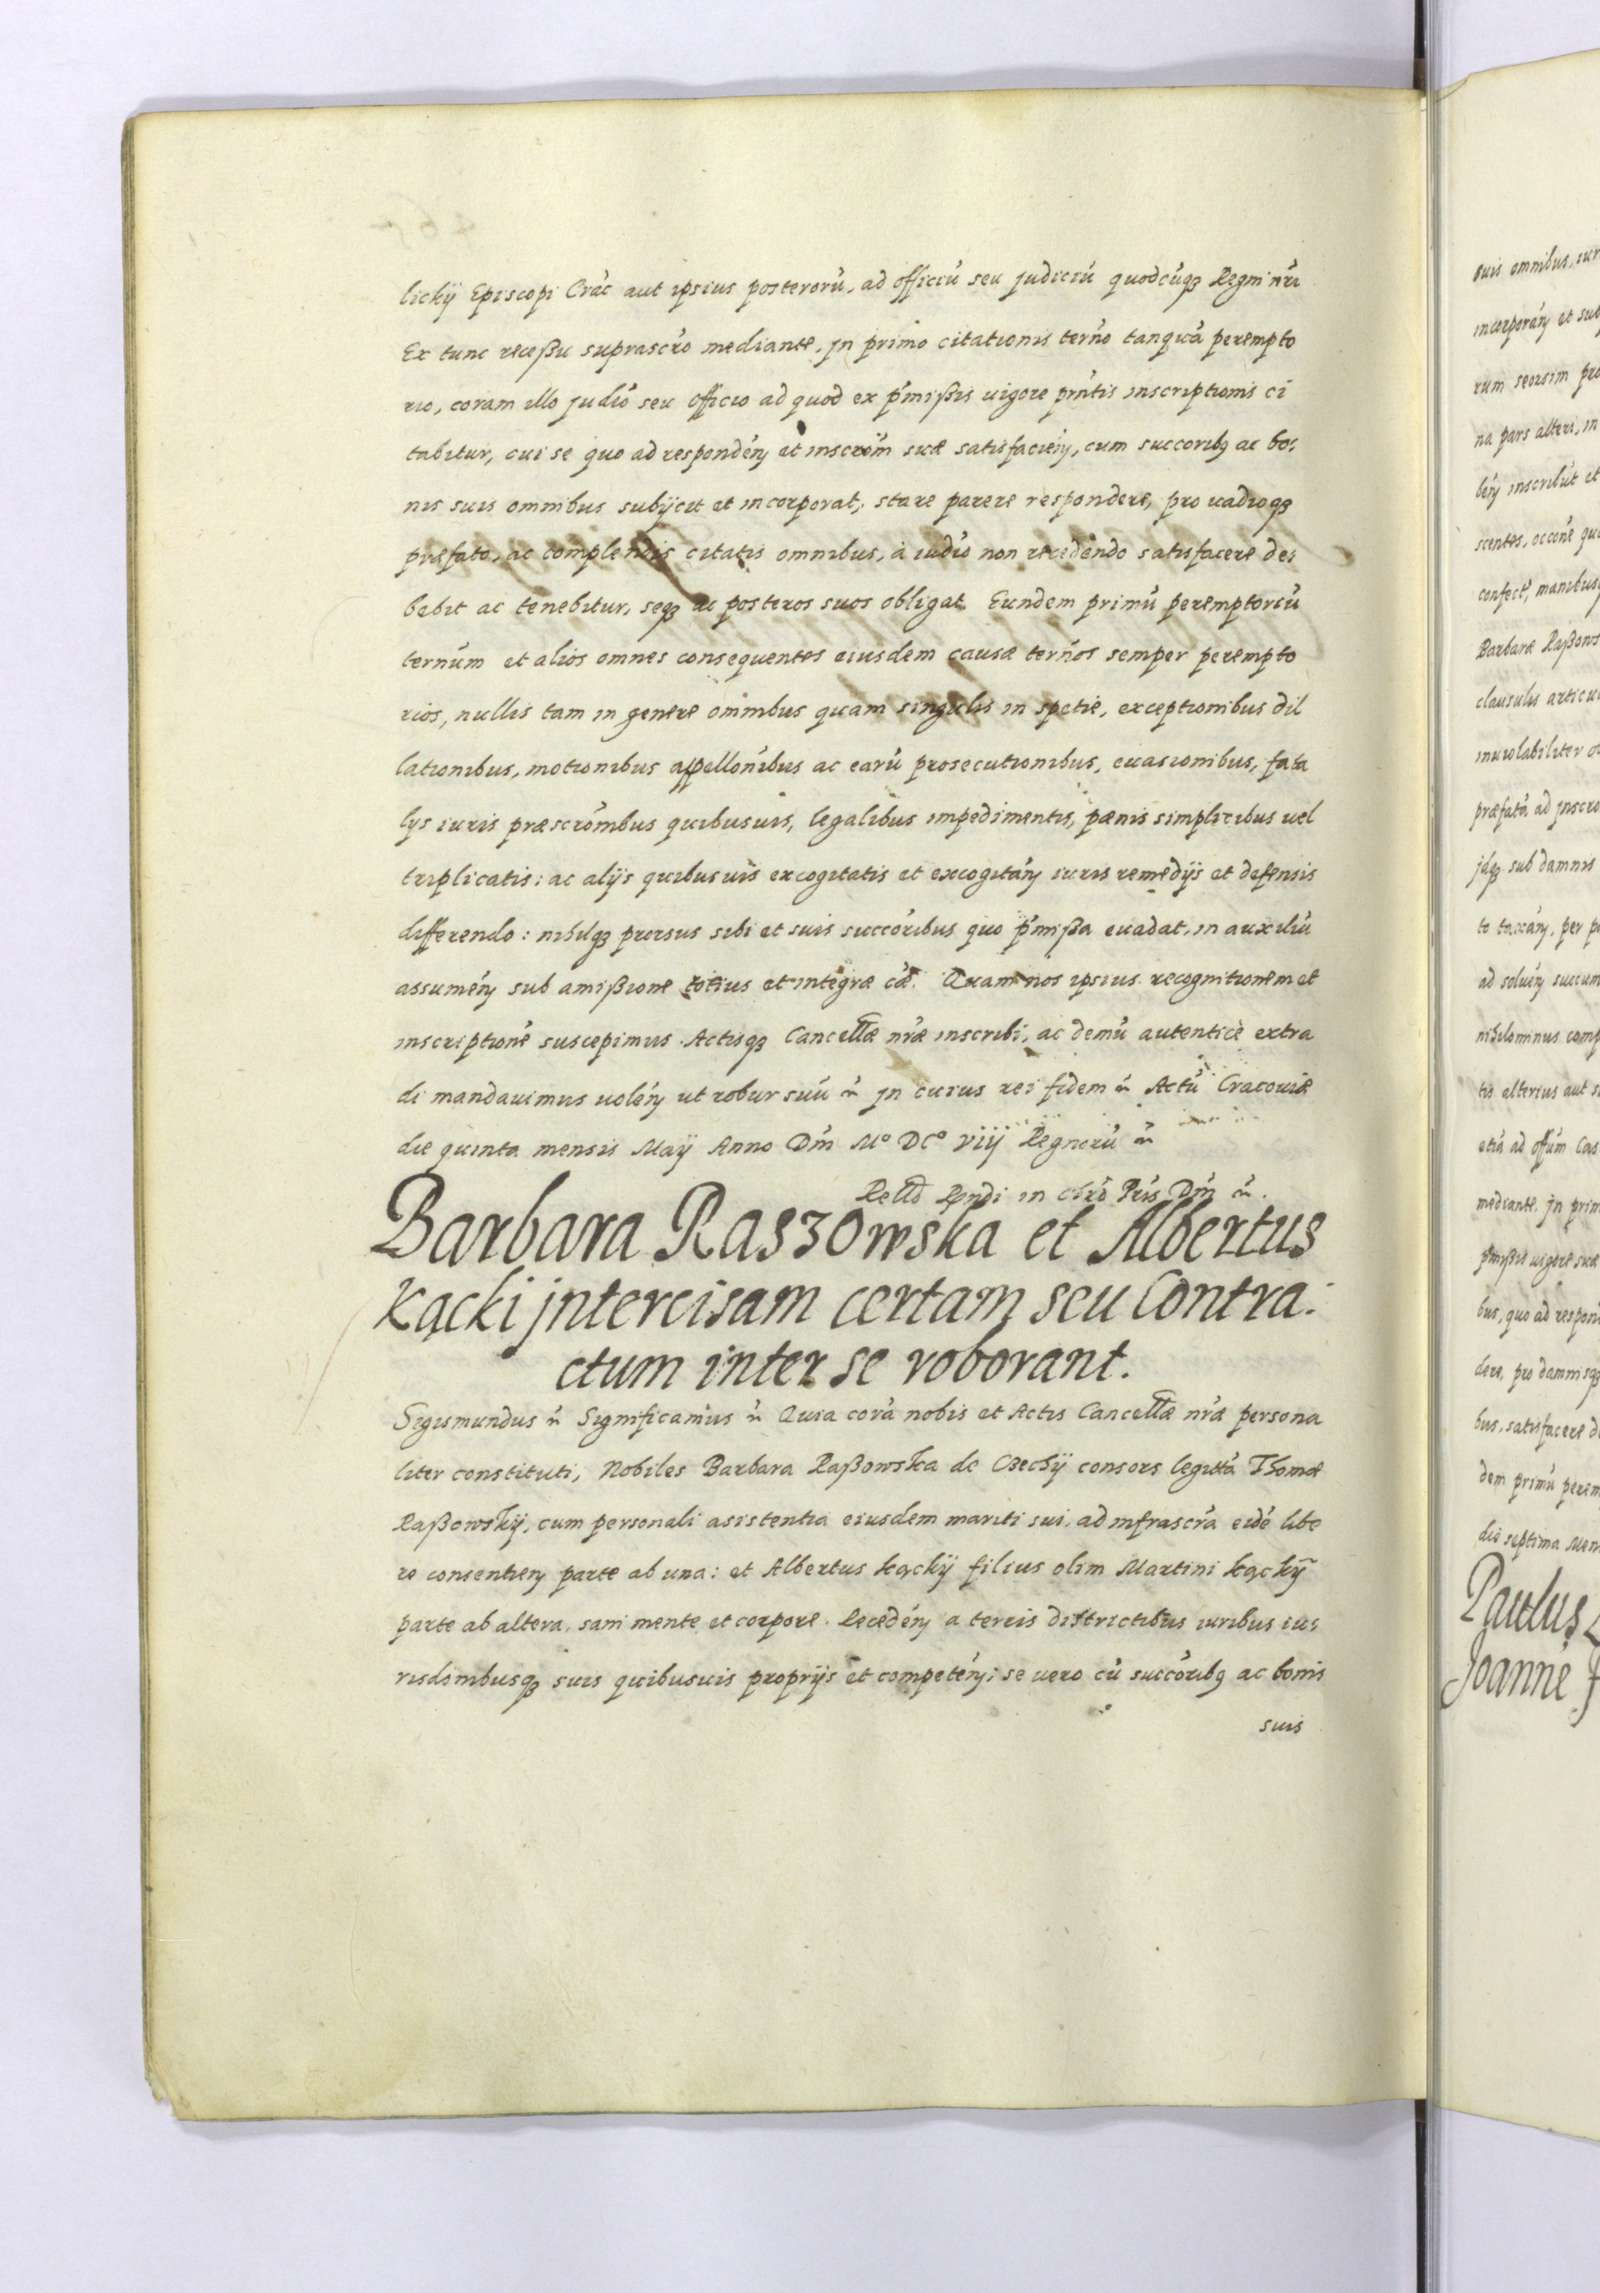 lickÿ Episcopi Crac̃ aut ipsius posterorũ, ad officiũ seu judiciũ quodcũqȝ Regni nr̃i
Ex tunc receßu suprascr̃o mediante, jn primo citationis term̃o tanquã perempto
rio, coram illo judĩo seu officio ad quod ex p̃mißis uigore pr̃ntis inscriptionis ci
tabitur, cui se quo ad respondeñ et inscrõm̃ suæ satisfacieñ, cum succoribȝ ac bo:
nis suis omnibus subÿcit et incorporat, stare parere respondere, pro uadioqȝ
præfato, ac complendis citatis omnibus, a iudĩo non recedendo satisfacere de:
bebit ac tenebitur, seqȝ ac posteros suos obligat. Eundem primũ peremptoriũ
term̃um et alios omnes consequentes eiusdem causæ term̃os semper perempto
rios, nullis tam in genere omnibus quam singulis in spetie, exceptionibus dil
lationibus, motionibus appellõnibus ac earũ prosecutionibus, euasionibus, fata
lys iuris præscrõnibus quibusuis, legalibus impedimentis, pænis simplicibus uel
triplicatis: ac alÿs quibusuis excogitatis et excogitañ iuris remedÿs et defensis
differendo: nihilqȝ prorsus sibi et suis succõribus quo p̃mißa euadat, in auxiliũ
assumeñ sub amißione totius et integræ cæ̃. Quam nos ipsius recognitionem et
inscriptionẽ suscepimus Actisqȝ Cancellæ nr̃æ inscribi, ac demũ autenticè extra
di mandauimus uoleñ ut robur suũ ꝛc̃ jn cuius rei fidem ꝛc̃ Actũ Cracouiæ
die quinta mensis Maÿ Anno Dñi Mº DCº viij Regnorũ ꝛc̃
Rel̃l̃o Rndi in Chr̃o Pr̃is Dñi ꝛc̃.
Barbara Raszowska et Albertus
Kącki jntercisam certam seu Contra:
ctum inter se roborant.
Sigismundus ꝛc̃ Significamus ꝛc̃ Quia corã nobis et Actis Cancellæ nr̃æ persona
liter constituti, Nobiles Barbara Raßowska de Czechÿ consors legitt̃a Thomæ
Raßowskÿ, cum personali asistentia eiusdem mariti sui, ad infrascr̃a eidẽ libe
re consentieñ parte ab una: et Albertus kąckÿ filius olim Martini kąckÿ
parte ab altera, sani mente et corpore. Recedeñ a terris districtibus iuribus iu:
risdõnibusqȝ suis quibusuis proprÿs et competeñ: se uero cũ succõribȝ ac bonis
suis
suis omnibus, iur
incorporañ et sub
rum seorsim pro
na pars alteri, in
beñ inscribũt et
scentes, occõne qu
confect̃, manibus
Barbaræ Raßows
clausulis articu
inuiolabiliter o
præfatã ad inscr
jdqȝ sub damnis
to taxañ, per p
ad solueñ succum
nihilominus comp
tis alterius aut s
etiã ad offũm Cas
mediante. Jn prim
p̃mißis uigore suæ
bus, quo ad respon
dere, pro damnisqȝ
bus, satisfacere d
dem primũ perem
die septima Men
Paulus
Joanne